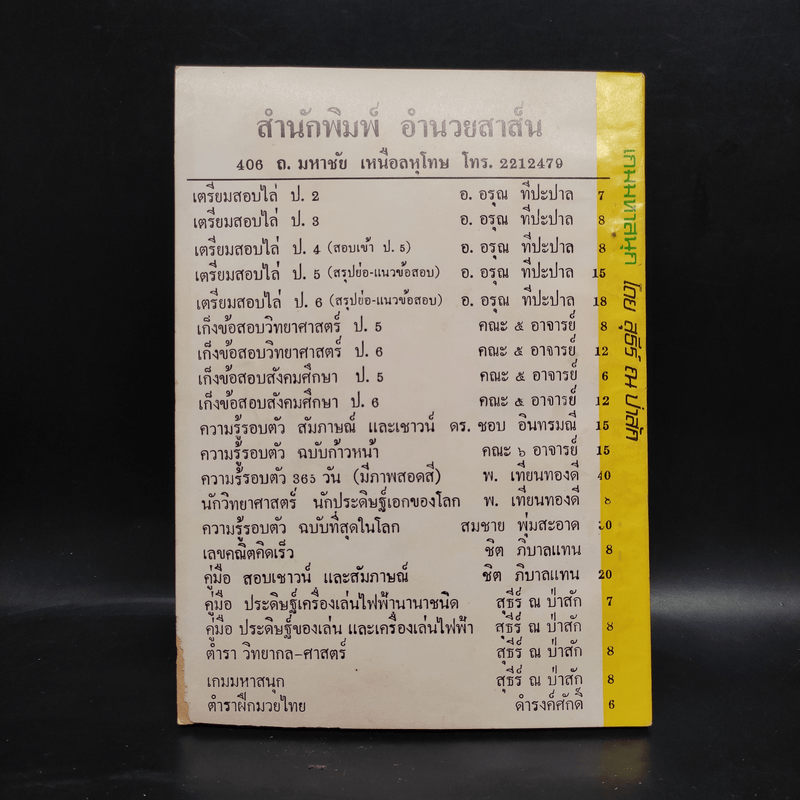 สำนักพิมพ์ อำนวยสาส์น
406 ถ. มหาชัย เหนือลหุโทษ โทร. 2212479
เตรียมสอบไล่ ป. 2 อ. อรุณ ทีปะปาล 7
เตรียมสอบไล่ ป. 3 อ. อรุณ ทีปะปาล 8
เตรียมสอบไล่ ป. 4 (สอบเข้า ป. 5) อ. อรุณ ทีปะปาล 8
เตรียมสอบไล่ ป. 5 (สรุปย่อ-แนวข้อสอบ) อ. อรุณ ทีปะปาล 15
เตรียมสอบไล่ ป. 6 (สรุปย่อ-แนวข้อสอบ) อ. อรุณ ทีปะปาล 18
เก็งข้อสอบวิทยาศาสตร์ ป. 5 คณะ ๕ อาจารย์ 8
เก็งข้อสอบวิทยาศาสตร์ ป. 6 คณะ ๕ อาจารย์ 12
เก็งข้อสอบสังคมศึกษา ป. 5 คณะ ๕ อาจารย์ 6
เก็งข้อสอบสังคมศึกษา ป. 6 คณะ ๕ อาจารย์ 12
ความรู้รอบตัว สัมภาษณ์ และเชาวน์ ดร. ชอบ อินทรมณี 15
ความรู้รอบตัว ฉบับก้าวหน้า คณะ ๖ อาจารย์ 15
ความรู้รอบตัว 365 วัน (มีภาพสอดสี) พ. เทียนทองดี 40
นักวิทยาศาสตร์ นักประดิษฐ์เอกของโลก พ. เทียนทองดี 8
ความรู้รอบตัว ฉบับที่สุดในโลก สมชาย พุ่มสะอาด
เลขคณิตคิดเร็ว ชิต ภิบาลแทน 8
คู่มือ สอบเชาวน์ และสัมภาษณ์ ชิต ภิบาลแทน 20
คู่มือ ประดิษฐ์เครื่องเล่นไฟฟ้านานาชนิด สุธีร์ ณ ป่าสัก 7
คู่มือ ประดิษฐ์ของเล่น และเครื่องเล่นไฟฟ้า สุธีร์ ณ ป่าสัก 8
ตำรา วิทยากล-ศาสตร์ สุธีร์ ณ ป่าสัก 8
เกมมหาสนุก สุธีร์ ณ ป่าสัก 8
ตำราฝึกมวยไทย ดำรงค์ศักดิ์ 6
เกมมหาสนุก โดย สุธีร์ ณ ป่าสัก